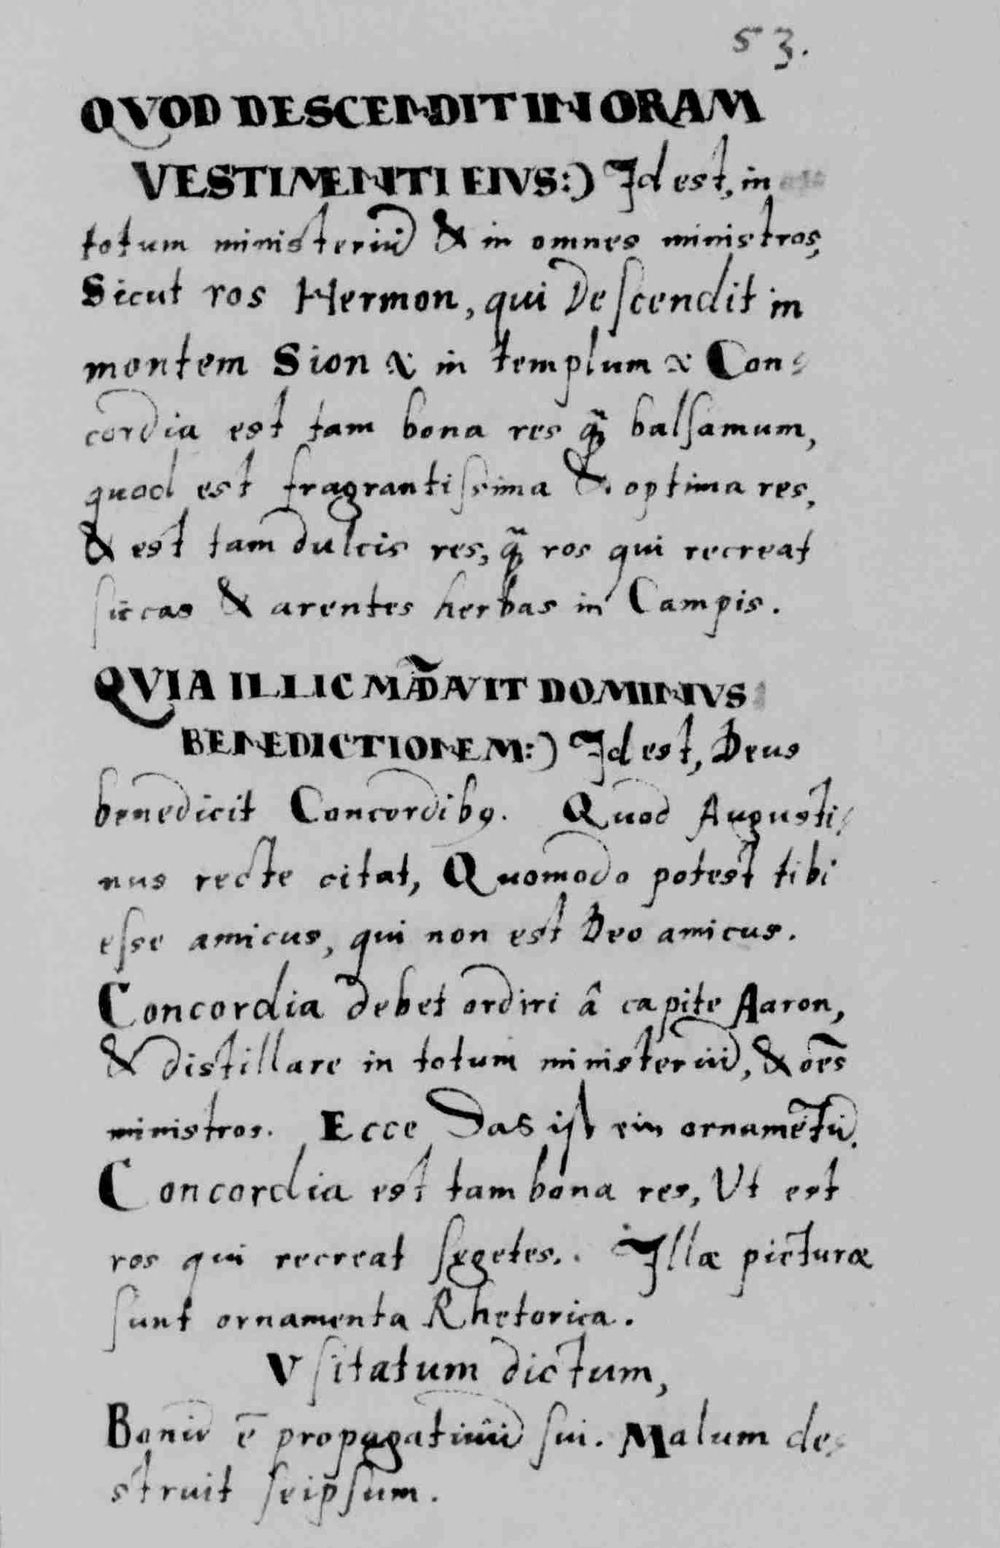 53.
QVOD DESCENDIT IN ORAM
VESTIMENTI EIVS:) Id est, in
totum ministeriũ & in omnes ministros,
Sicut ros Hermon, qui Deſcendit in
montem Sion & in templum & Con-
cordia est tam bona res q̃ balſamum,
quod est fragrantiſsima &. optima res,
& est tam dulcis res, q̃ ros qui recreat
ſiccas & arentes herbas in Campis.
QVIA ILLIC MÃDAVIT DOMINVS
BENEDICTIONEM:) Id est, Deus
benedicit Concordibꝰ. Quod Augusti-
nus recte citat, Quomodo potest tibi
eſse amicus, qui non est Deo amicus.
Concordia debet ordiri â capite Aaron,
& distillare in totum ministeriũ, & oẽs
ministros. Ecce Das iſt ein ornamẽtũ.
Concordia est tam bona res, Vt est
ros qui recreat ſegetes.. Illæ picturæ
ſunt ornamenta Rhetorica.
Vſitatum dictum,
Bonũ ẽ propagatiuũ ſui. Malum de-
struit ſeipſum.